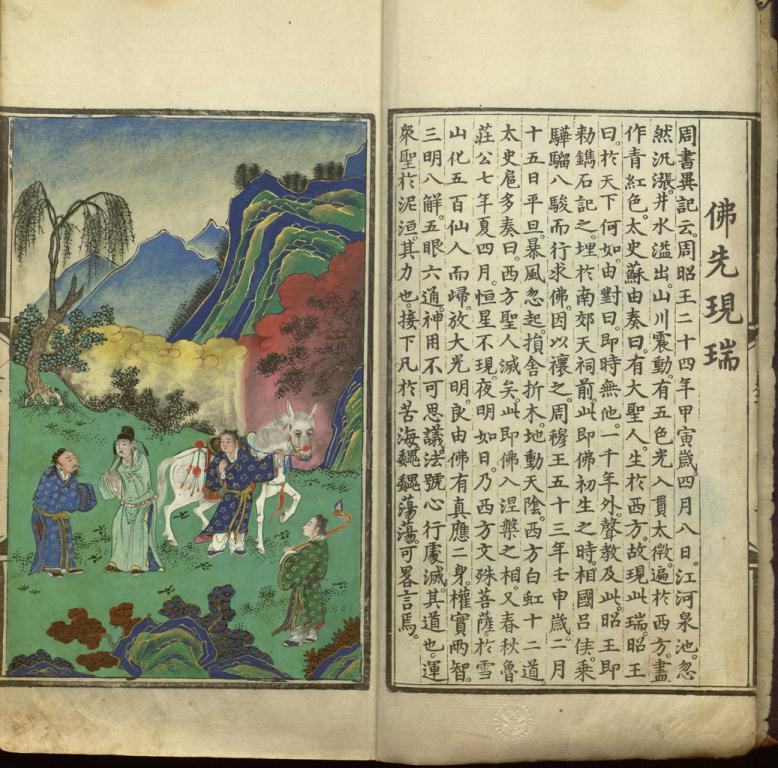 佛先現瑞
周書異記云。周昭王二十四年甲寅歲四月八日。江河泉池。忽
然汎漲。井水溢出。山川震動。有五色光入貫太微。遍於西方。盡
作青紅色。太史蘇由奏曰。有大聖人。生於西方。故現此瑞。昭王
曰。於天下何如。由對曰。即時無他。一千年外。聲教及此。昭王即
勅鐫石記之。埋於南郊天祠前。此即佛初生之時。相國呂侯。乘
驊騮八駿而行求佛。因以禳之。周穆王五十三年壬申歲二月
十五日平旦。暴風忽起。損舍折木。地動天陰。西方白虹十二道。
太史扈多奏曰。西方聖人滅矣。此即佛入涅槃之相。又春秋魯
莊公七年夏四月。恒星不現。夜明如日。乃西方文殊菩薩。於雪
山化五百仙人而歸。放大光明。良由佛有真應二身。權實兩智。
三明八解。五眼六通。神用不可思議。法號心行處滅。其道也。運
衆聖於泥洹。其力也。接下凡於苦海。巍巍蕩蕩。可畧言焉。